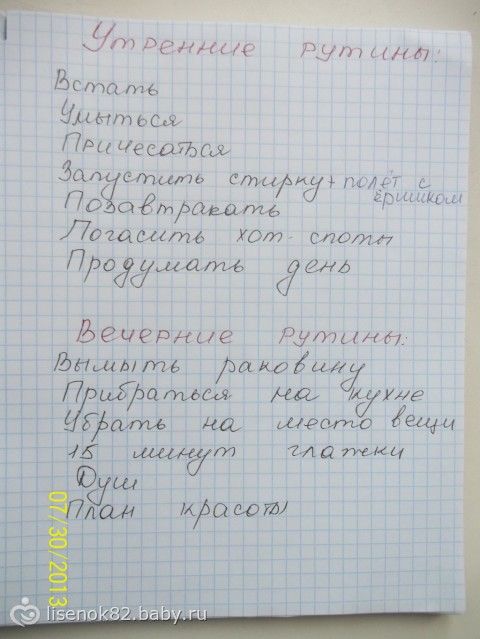 Утренние рутины:
Встать
Умыться
Причесаться
Запустить стирку + полёт с ёршиком
Позавтракать
Погасить хот-споты
Продумать день
Вечерние рутины:
Вымыть раковину
Прибраться на кухне
Убрать на место вещи
15 минут глажки
Душ
План красоты
07/30/2013
lisenok82.baby.ru